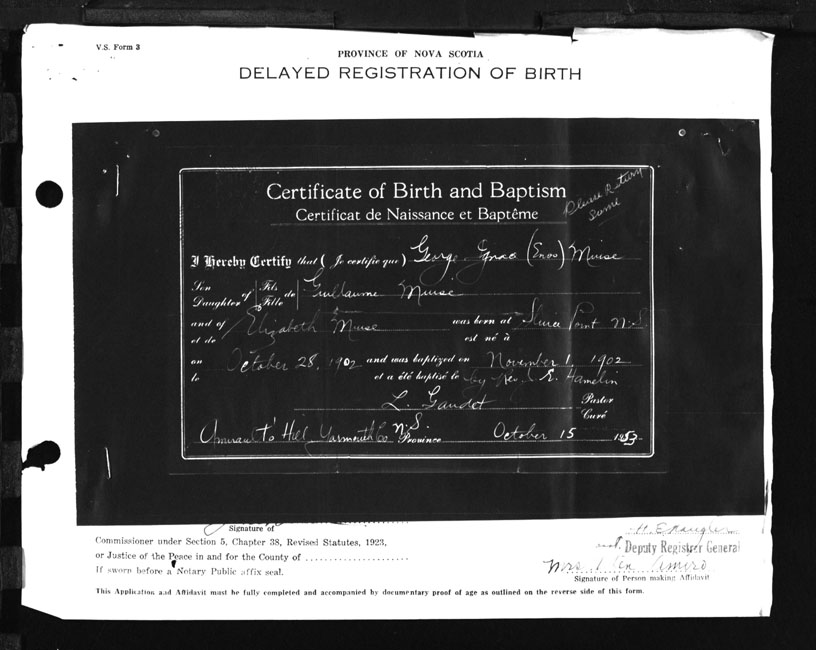 V.S. Form 3
PROVINCE OF NOVA SCOTIA
DELAYED REGISTRATION OF BIRTH
Please Return
Same
Certificate of Birth and Baptism
Certificat de Naissance et Baptême
I Hereby Certify that ( Je certifie que ) George (Enos) Muise
Son Daughter of Fils Fille de Guillaume Muise
and of et de Elizabeth Muise was born at est né à Sluice Point N.S.
on le October 28, 1902 and was baptized on et a été baptisé le November 1, 1902
by Rev. E. Hamelin
L. Gaudet Pastor Curé
Amirault's Hill, Yarmouth Co. N.S. Province October 15 1953
Signature of
Commissioner under Section 5, Chapter 38, Revised Statutes, 1923,
or Justice of the Peace in and for the County of
If sworn before a Notary Public affix seal.
Deputy Registrar General
Mrs. Amiro
Signature of Person making Affidavit
This Application and Affidavit must be fully completed and accompanied by documentary proof of age as outlined on the reverse side of this form.